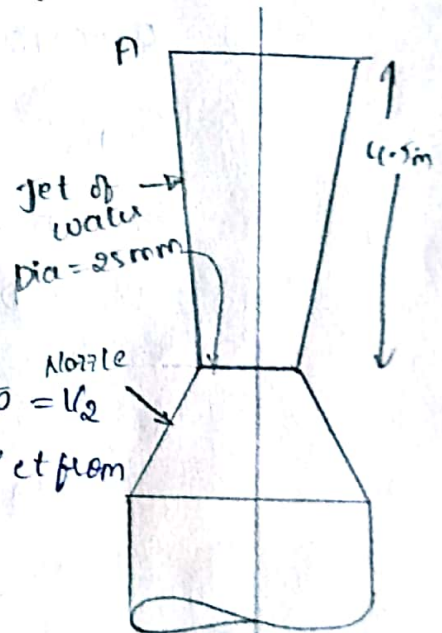 A
4.5m
Jet of
water
Dia = 25mm
Nozzle
= V₂
et from